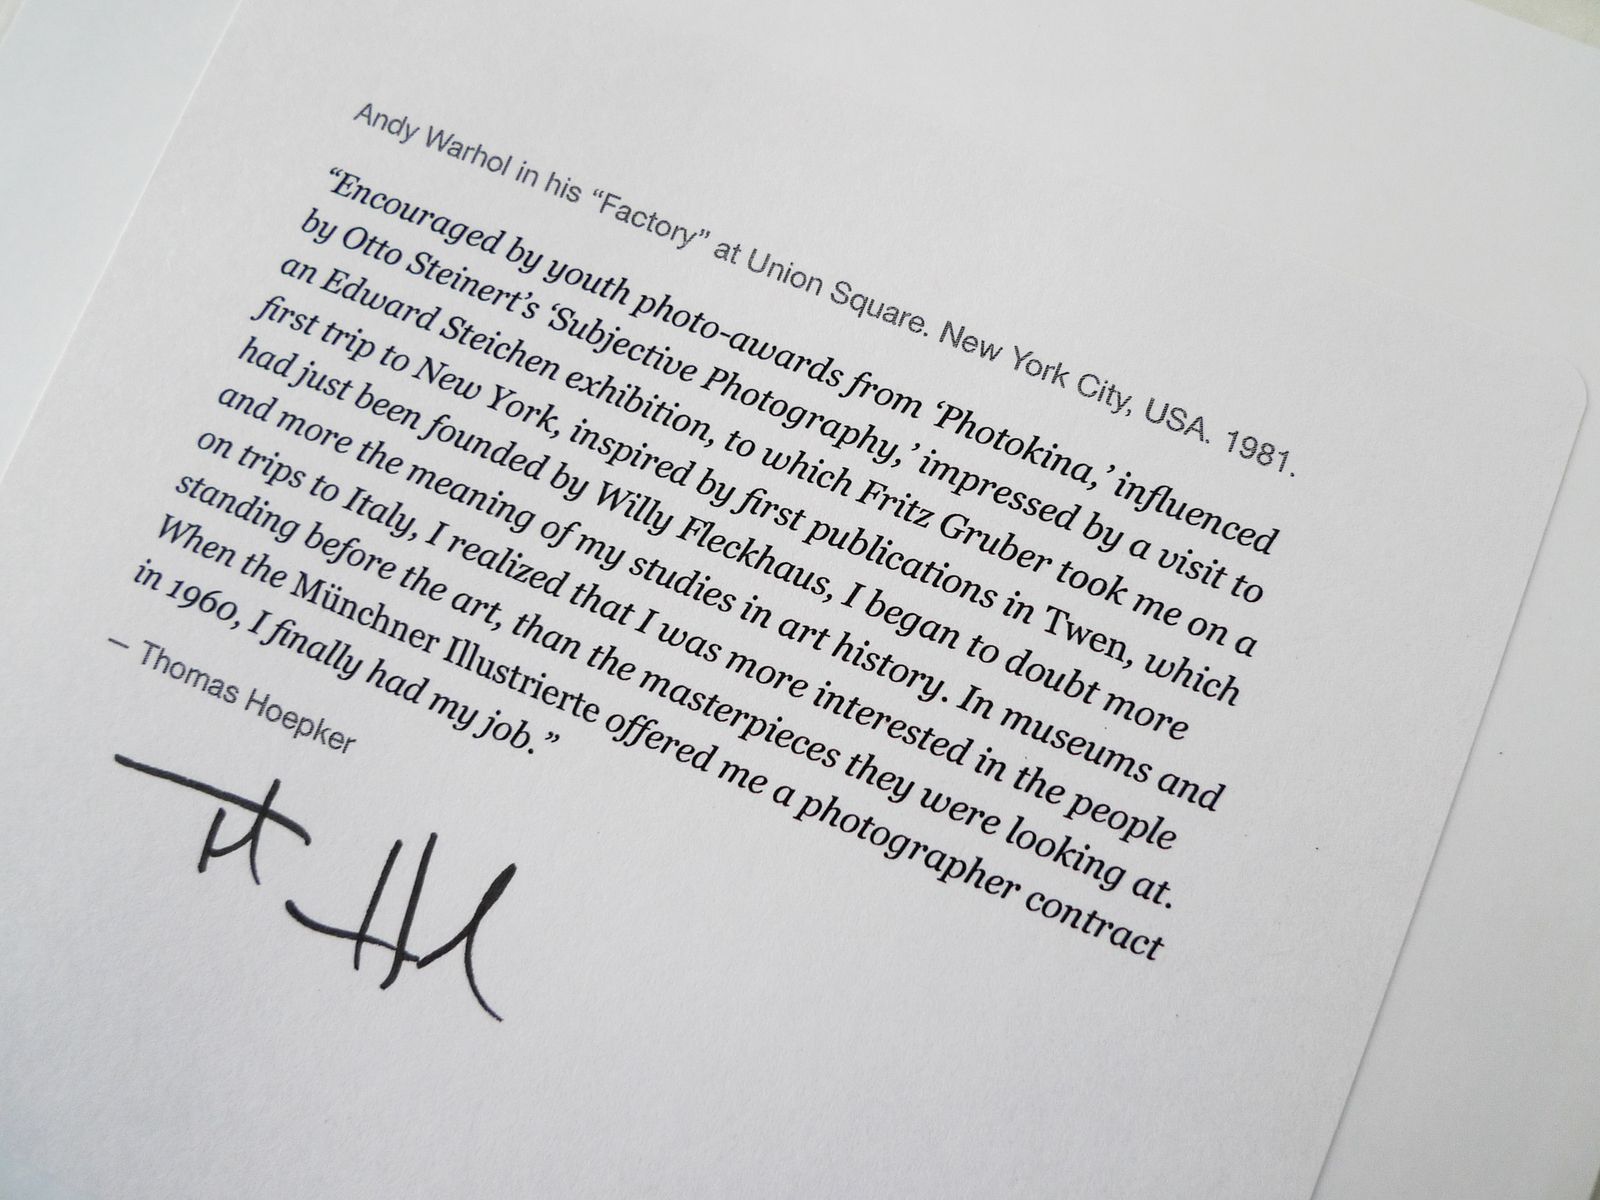 Andy Warhol in his “Factory” at Union Square. New York City, USA. 1981.
“Encouraged by youth photo-awards from ‘Photokina,’ influenced
by Otto Steinert’s ‘Subjective Photography,’ impressed by a visit to
an Edward Steichen exhibition, to which Fritz Gruber took me on a
first trip to New York, inspired by first publications in Twen, which
had just been founded by Willy Fleckhaus, I began to doubt more
and more the meaning of my studies in art history. In museums and
on trips to Italy, I realized that I was more interested in the people
standing before the art, than the masterpieces they were looking at.
When the Münchner Illustrierte offered me a photographer contract
in 1960, I finally had my job.”
– Thomas Hoepker